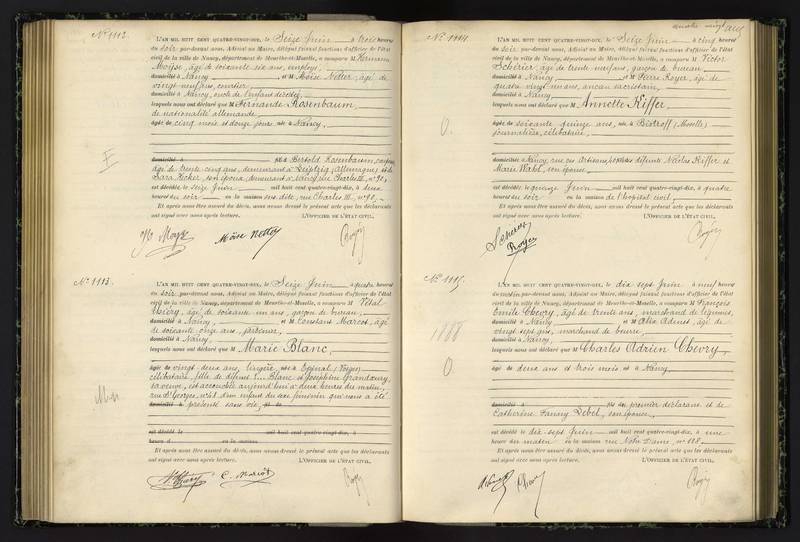 N° 1112.
L'AN MIL HUIT CENT QUATRE-VINGT-DIX, le Seize Juin à trois heures
du soir par-devant nous, Adjoint au Maire, délégué faisant fonctions d'officier de l'état
civil de la ville de Nancy, département de Meurthe-et-Moselle, a comparu M Hermann
Moÿse, âgé de soixante six ans, employé,
domicilié à Nancy, et M Moïse Netter, âgé de
vingt neuf ans, courtier,
domicilié à Nancy, oncle de l'enfant décédée,
lesquels nous ont déclaré que M Fernande Rosenbaum,
de nationalité allemande,
âgée de cinq mois et douze jours née à Nancy,
domiciliée à fille de Bertold Rosenbaum,
âgé de trente cinq ans, demeurant à Leipzig (Allemagne) et de
Sara Hecker, son épouse, demeurant à Nancy rue Charles III, n° 90,
est décédée le seize Juin mil huit cent quatre-vingt-dix, à deux
heures du soir en la maison sus dite, rue Charles III, n° 90.
Et après nous être assuré du décès, nous avons dressé le présent acte que les déclarants
ont signé avec nous après lecture. L'OFFICIER DE L'ÉTAT CIVIL,
Moyse Moïse Netter
N° 1113.
L'AN MIL HUIT CENT QUATRE-VINGT-DIX, le Seize Juin à quatre heures
du soir par-devant nous, Adjoint au Maire, délégué faisant fonctions d'officier de l'état
civil de la ville de Nancy, département de Meurthe-et-Moselle, a comparu M Vital
Thiéry, âgé de soixante un ans, garçon de bureau,
domicilié à Nancy, et M Constant Marcot, âgé
de soixante onze ans,
domicilié à Nancy,
lesquels nous ont déclaré que M Marie Blanc,
âgée de vingt deux ans, lingère, née à Epinal (Vosges)
célibataire, fille de défunt Blanc et Joséphine Grandaury,
sa veuve, est accouchée aujourd'hui à deux heures du matin,
rue St Georges, n° 51 d'un enfant du sexe féminin qui nous a été
domiciliée à présenté sans vie,
est décédé le mil huit cent quatre-vingt-dix, à
heure d en la maison
Et après nous être assuré du décès, nous avons dressé le présent acte que les déclarants
ont signé avec nous après lecture. L'OFFICIER DE L'ÉTAT CIVIL,
C. Marcot
N° 1114.
L'AN MIL HUIT CENT QUATRE-VINGT-DIX, le Seize Juin à cinq heures
du soir par-devant nous, Adjoint au Maire, délégué faisant fonctions d'officier de l'état
civil de la ville de Nancy, département de Meurthe-et-Moselle, a comparu M Victor
Scherier, âgé de trente neuf ans, garçon de bureau,
domicilié à Nancy, et M Pierre Royer, âgé de
quatre vingt un ans, ancien sacristain,
domicilié à Nancy,
lesquels nous ont déclaré que M Annette Kiffer,
âgée de soixante quinze ans, née à Bistroff (Moselle)
journalière, célibataire,
domiciliée à Nancy, rue des Artisans, fille de défunts Nicolas Kiffer et
Marie son épouse,
est décédée le quinze Juin mil huit cent quatre-vingt-dix, à quatre
heures du soir en la maison de l'hôpital civil,
Et après nous être assuré du décès, nous avons dressé le présent acte que les déclarants
ont signé avec nous après lecture. L'OFFICIER DE L'ÉTAT CIVIL,
Scherier
Royer
N° 1115.
L'AN MIL HUIT CENT QUATRE-VINGT-DIX, le dix sept Juin à neuf heures
du matin par-devant nous, Adjoint au Maire, délégué faisant fonctions d'officier de l'état
civil de la ville de Nancy, département de Meurthe-et-Moselle, a comparu M François
Emile Chevry, âgé de trente ans, marchand de légumes,
domicilié à Nancy et M Alix Adenis, âgé de
vingt sept ans, marchand de beurre,
domicilié à Nancy,
1888
lesquels nous ont déclaré que M Charles Adrien Chevry,
âgé de deux ans et trois mois né à Nancy,
domicilié à fils du premier déclarant et de
Catherine Fanny Lebel, son épouse,
est décédé le dix-sept Juin mil huit cent quatre-vingt-dix, à une
heure du matin en la maison rue Notre Dame, n° 128,
Et après nous être assuré du décès, nous avons dressé le présent acte que les déclarants
ont signé avec nous après lecture. L'OFFICIER DE L'ÉTAT CIVIL,